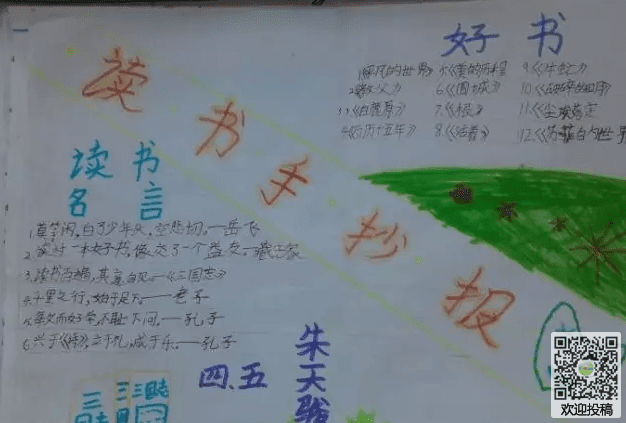 读书手抄报
好书
1《平凡的世界》 5.《美的历程 9.《牛虻》
2.《教父》 6.《围城》 10.
3.《白鹿原》 7.《根》 11.《尘埃落定
4.《万历十五年》 8.《活着》 12.《苏菲的世界
读书
名言
1.莫等闲,白了少年头,空悲切。—岳飞
2.读过一本好书,像交了一个益友。—臧克家
3.读书百遍,其意自见—《三国志》
4.千里之行,始于足下。——老子
5.敏而好学,不耻下问。——孔子
6.兴于《诗》,立于礼,成于乐。——孔子
四、五
朱天骏
三国
欢迎投稿